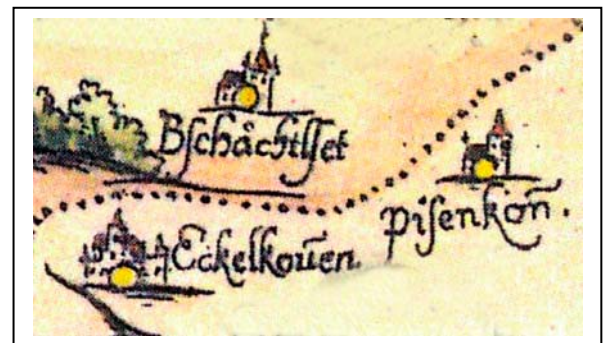 Bſchåchtlſet
piſenkon̄.
Eckelkoūen.